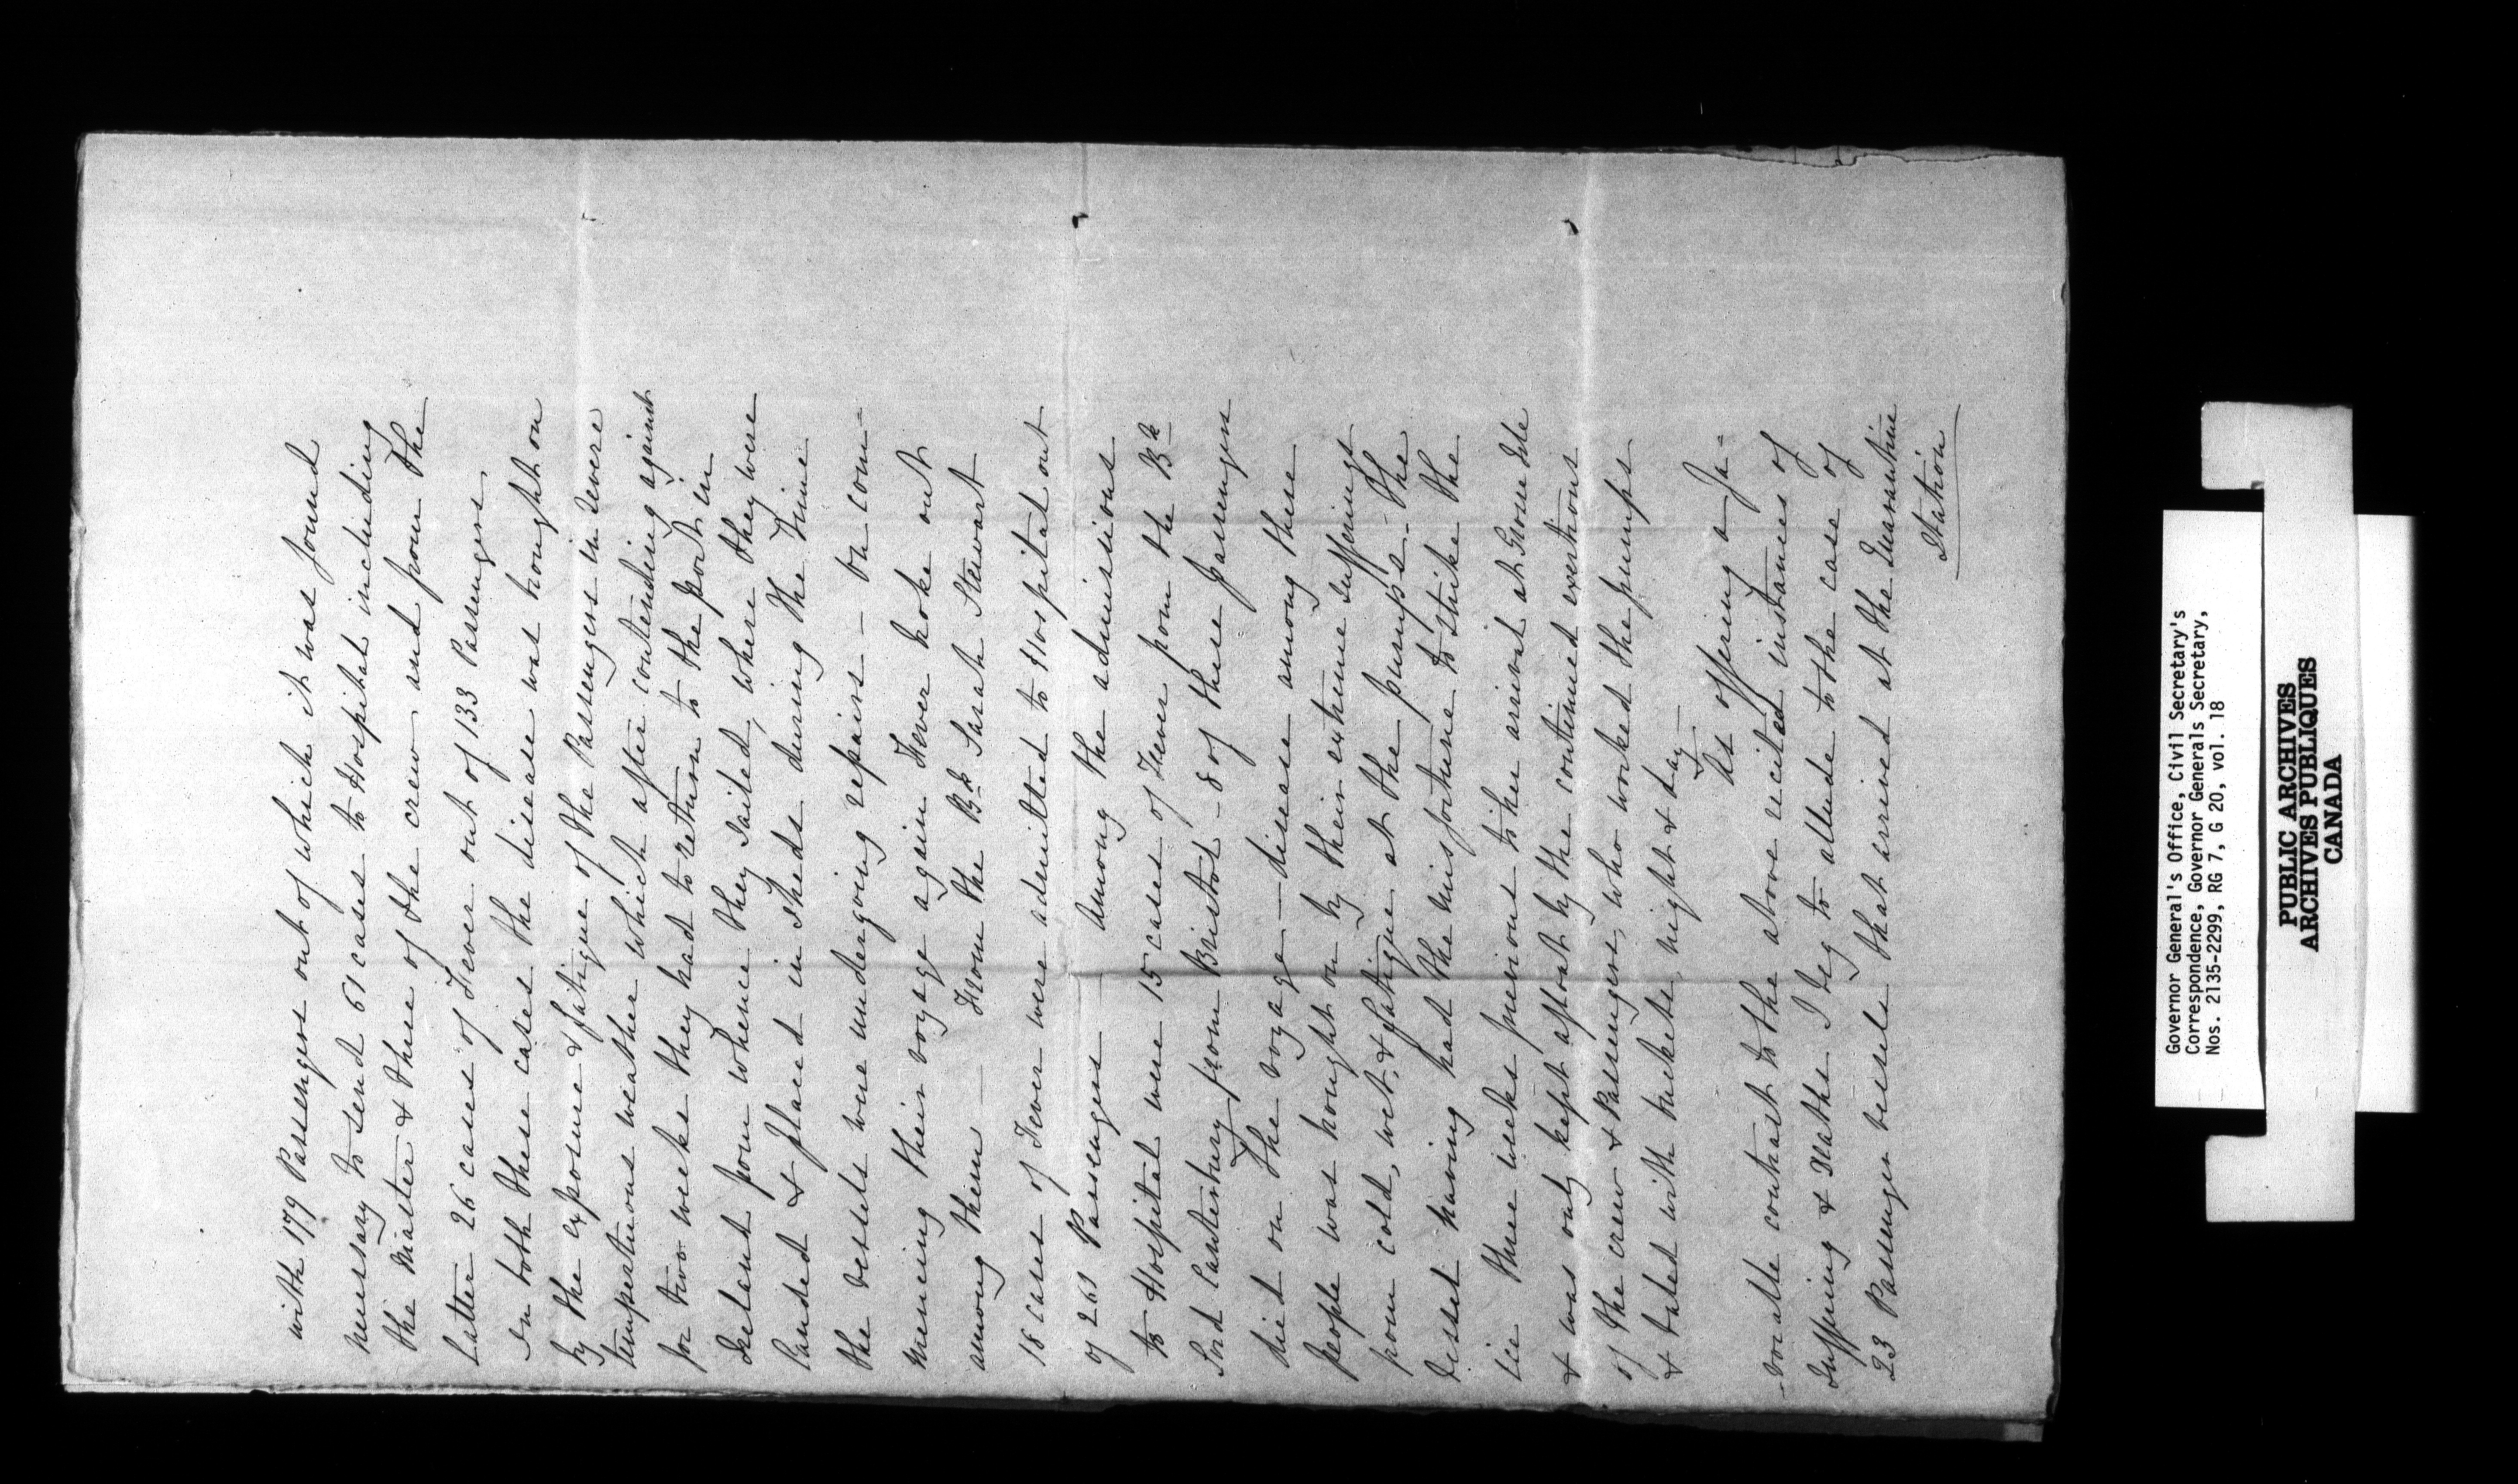 with 179 Passengers out of which it was found
necessary to send 61 cases to Hospital including
the Master & three of the crew and from the
latter 26 cases of Fever out of 133 Passengers.
In both these cases the disease was brought on
by the exposure & fatigue of the Passengers in severe
tempestuous weather which after contending against
for two weeks they had to return to the port in
Ireland from whence they sailed, where they were
landed & placed in sheds during the time
the vessels were undergoing repairs — On com=
mencing their voyage again Fever broke out
among them — From the Bk Sarah Stewart
18 cases of Fever were admitted to Hospital out
of 261 Passengers — Among the admissions
to Hospital were 15 cases of Fever from the Bk
Lord Canterbury from Bristol — 8 of these passengers
died on the voyage — disease among these
people was brought on by their extreme sufferings
from cold, wet, & fatigue at the pumps — The
Vessel having had the misfortune to strike the
ice three weeks previous to her arrival at Grosse Isle
& was only kept afloat by the continued exertions
of the crew & Passengers, who worked the pumps
& baled with buckets night & day —
As offering a fa=
-vorable contrast to the above recited instances of
suffering & deaths I beg to allude to the case of
23 Passenger vessels that arrived at the Quarantine
Station
Governor General's Office, Civil Secretary's
Correspondence, Governor Generals Secretary,
Nos. 2135-2299, RG 7, G 20, vol. 18
PUBLIC ARCHIVES
ARCHIVES PUBLIQUES
CANADA